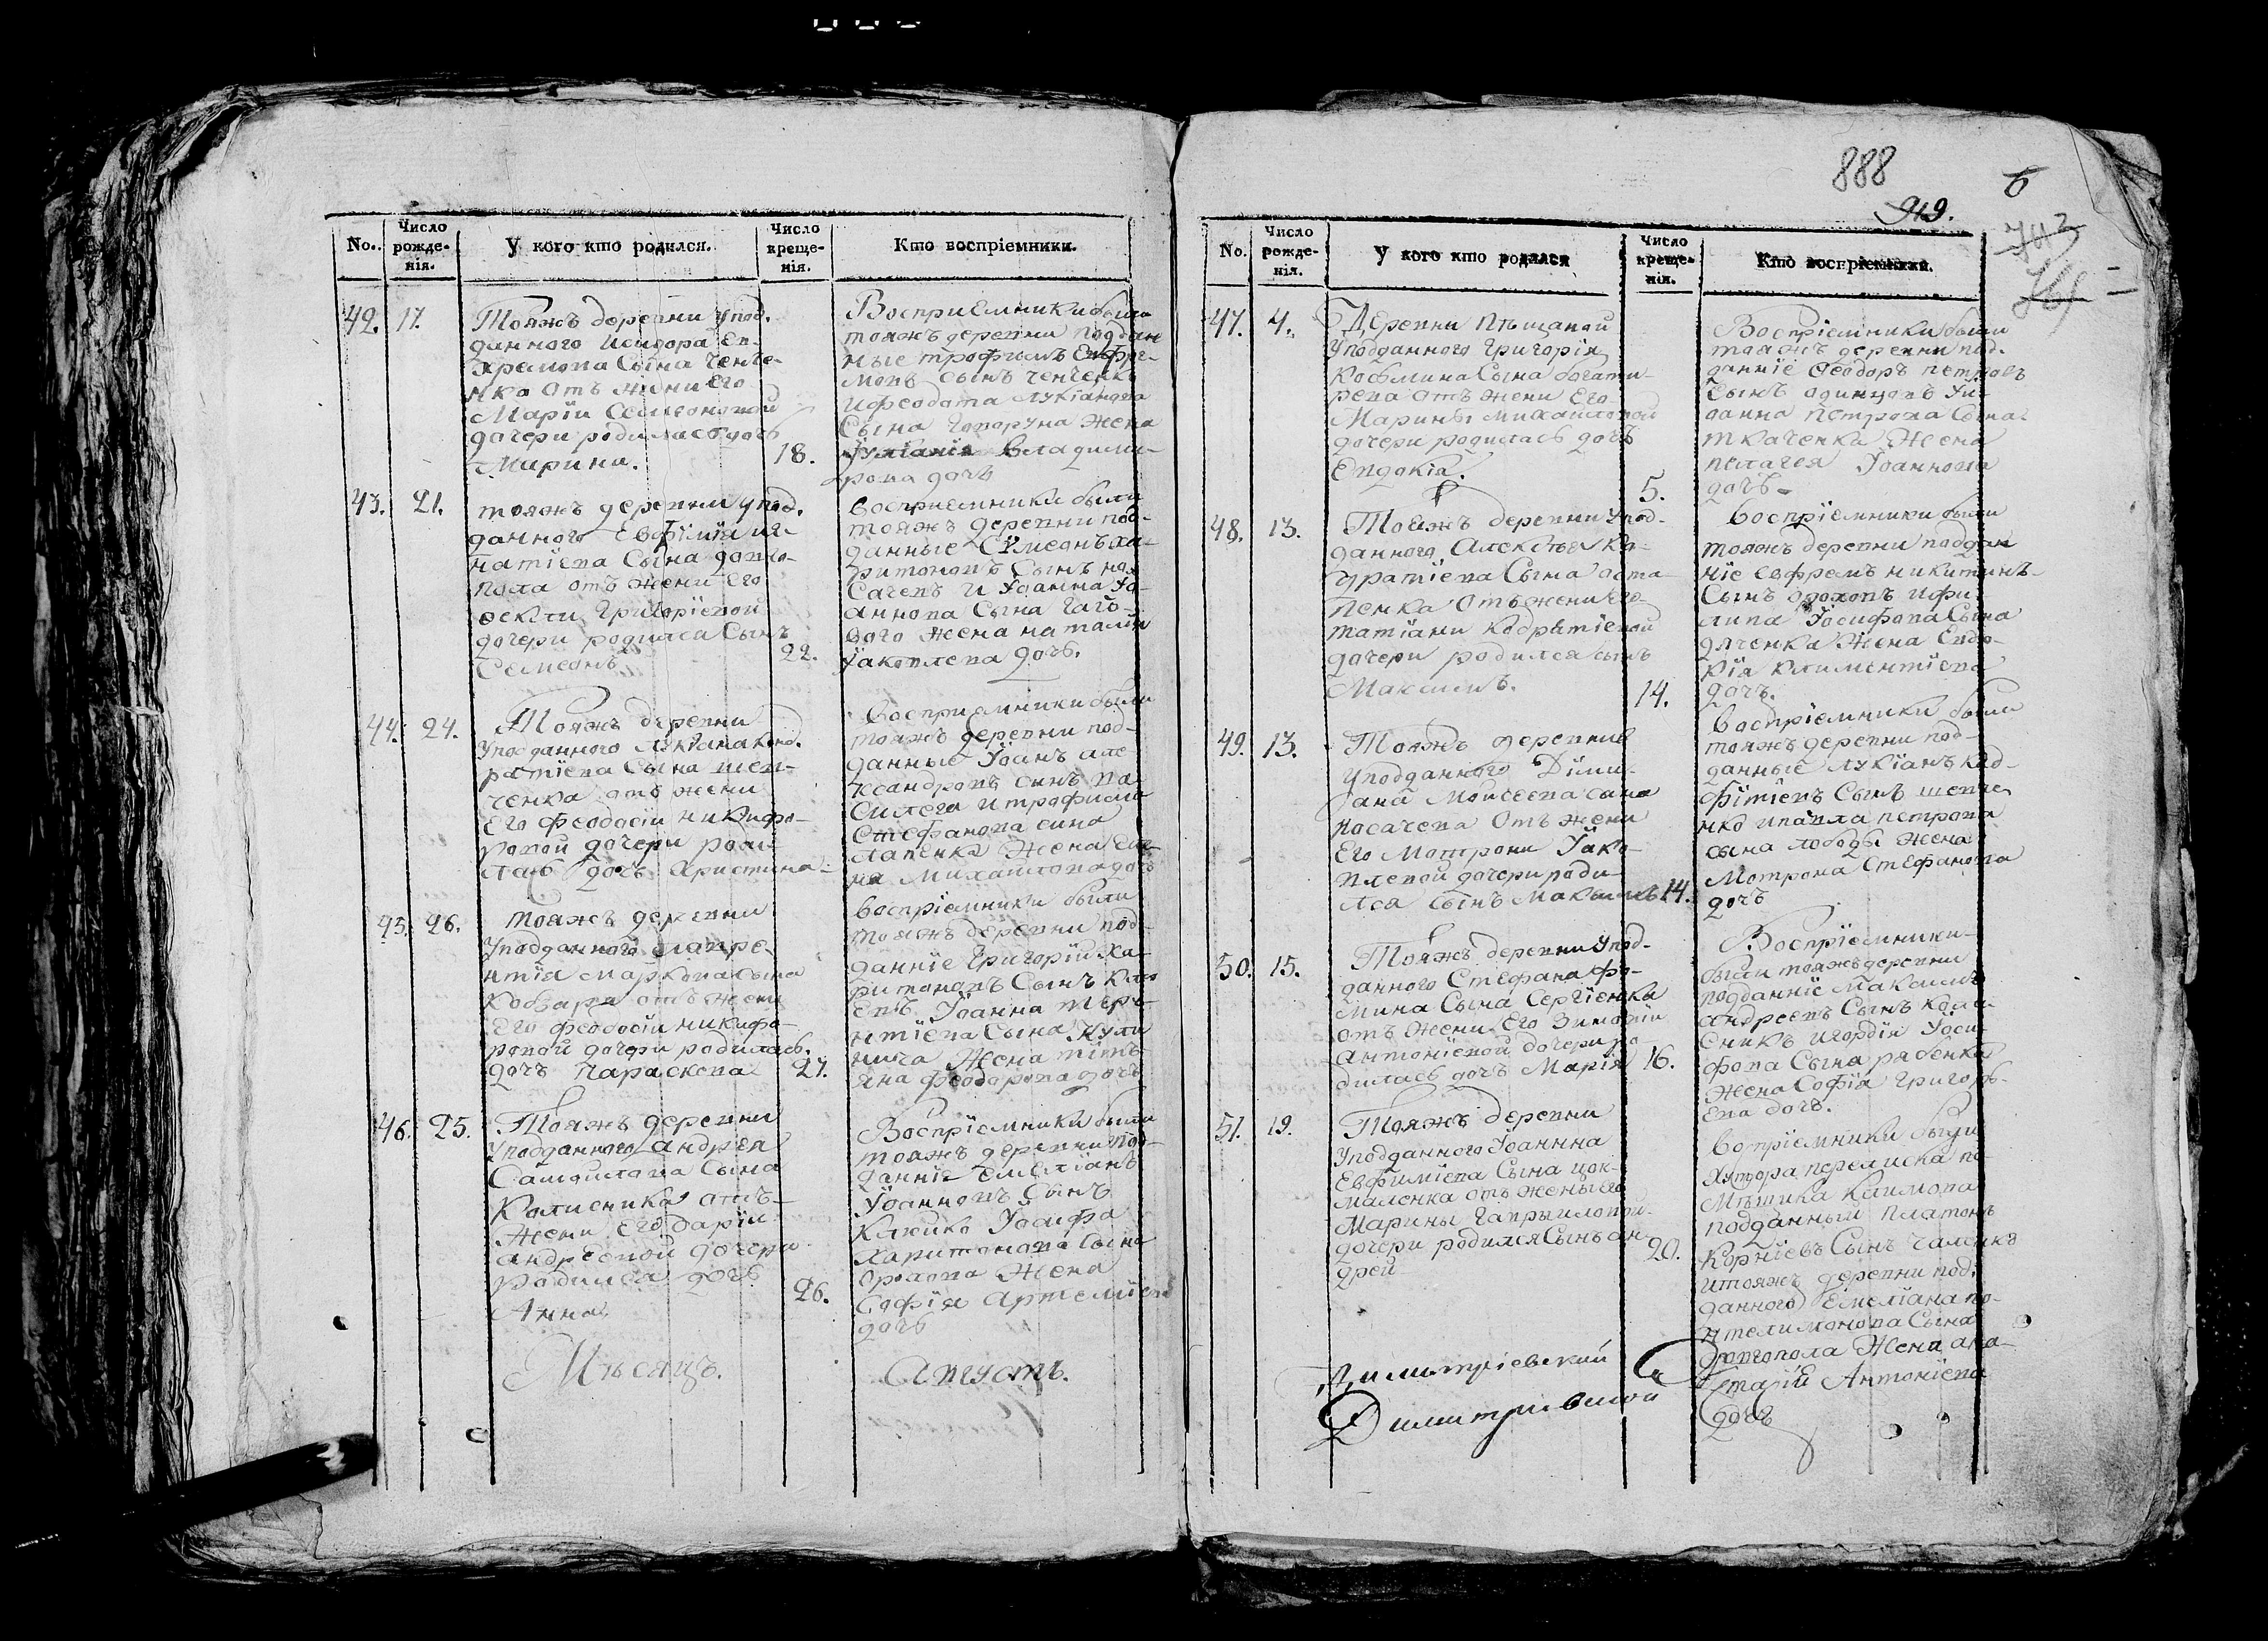 No.
Число рожде-нія.
У кого кто родился.
Число креще-нія.
Кто воспріемники.
42. 17.
Тояжъ деревни упод-
данного Исидора Еп-
хремова Сына Ченче-
нка отъ жени Его
Маріи Семеоновой
дочери родилась дочь
Марина.
18.
Восприемники были
тояжъ деревни поддан
ные трофимъ Евфре-
мовъ сынъ ченченко
и феодота Лукіанова
Сына Говоруна Жена
Іуліанія Владими-
рова дочь
43. 21.
тояжъ деревни упод.
данного Евфіміи иг-
натіева Сына довго-
пола отъ жени Его
Феклы Григоріевой
дочери родился Сынъ
Семеонъ
22.
восприемники были
тояжъ деревни под-
данные Сумеонъ ха-
ритоновъ Сынъ
и Уоанна Уо-
аннова Сына
жена наталия
Уаковлева дочь.
44. 24.
Тояжъ деревни
Уподданного Лукіана Конд.
ратіева Сына шев-
ченка отъ жени
Его Феодосіи Никифо-
ровой дочери роди-
лась дочь Христина
восприемники были
тояжъ деревни под-
данные Уоанъ але
ксандровъ сынъ ва-
силега и трофима
Стефанова сина
лапенка Жена Еле-
на Михаилова дочь
45. 26.
тояжъ деревни
Уподданного Лавре-
нтія Маркова сына
Кобзаря отъ жени
Его феодосіи никифо-
ровой дочери родилась.
дочь Параскева
27.
воспріемники были
тояжъ деревни под-
данніе Григорій Ха-
ритоновъ Сынъ
Уоанна тере-
нтіева Сына Кули
нича Жена
феодорова дочь
46. 25.
Тояжъ деревни
Уподданного Андрея
Самоилова Сына
Колисника отъ
Жени Его даріи
андреевой дочери
родилса дочь
Анна
26.
Воспріемники были
тояжъ деревни под-
данніе Емеліанъ
Уоанновъ Сынъ
Уосифа
Харитонова Сына
Орохова Жена
Софія Артеміева
дочь
Мѣсяцъ. Августъ.
888
919.
No.
Число рожде-нія.
У кого кто родился
Число креще-нія.
Кто воспріемники.
47. 4.
Деревни Пѣщаной
Уподданного Григорія
Козмина Сына богати-
рева отъ жени Его
Марины Михаиловой
дочери родилась дочь
Евдокіа.
5.
Воспріемники были
тояжъ деревни под.
данніе Феодоръ петровъ
Сынъ одинцовъ Уи-
оанна Петрова Сына
ткаченка Жена
пелагея Уоаннова
дочь
48. 13.
Тояжъ деревни Упод-
данного Алексѣя Ко-
ндратіева Сына оста-
пенка отъ жени Его
татіани Кодратіевой
дочери родился сынъ
Максимъ.
14.
воспріемники были
тояжъ деревни поддан
ніе Евфремъ никитинъ
Сынъ ороховъ и фи-
липа Уосифова Сына
дяченка Жена Евдо-
кія Климентіева
дочь.
49. 13.
Тояжъ деревни
Уподданного Дими-
яна Моисеева сына
Носачева отъ жени
Его Мотрони Уако-
влевой дочери роди-
лся Сынъ Максимъ
14.
воспріемники были
тояжъ деревни под-
данные Лукіанъ Код-
Сынъ шевче
нко и павла петрова
сына лободы Жена
Мотрона Стефанова
дочь
50. 15.
Тояжъ деревни Упод-
данного Стефана Фо-
мина Сына Сергіенка
отъ жени Его
антоніевой дочери ро-
дилась дочь Марія
16.
Воспріемники
были тояжъ деревни
подданніе Максимъ
андреевъ Сынъ коли-
сникъ и гордія Уоси-
фова Сына рябенка
жена Софія Григорь-
ева дочь.
51. 19.
Тояжъ деревни
Уподданного Уоаннна
Евфиміева Сына цок-
маленка отъ жены Его
Марины Гаврыловни-
дочери родился Сынъ ан-
дрей
20.
воспріемники были
Хутора перелиска по-
мѣщика Климова
подданный Платонъ
Корніевъ Сынъ Чаленко
и тояжъ деревни под.
данного Емеліана по-
нтелимонова Сына
довгопола Жена ана-
стасіи Антоніева
дочь
Димитріевский
Димитриевский